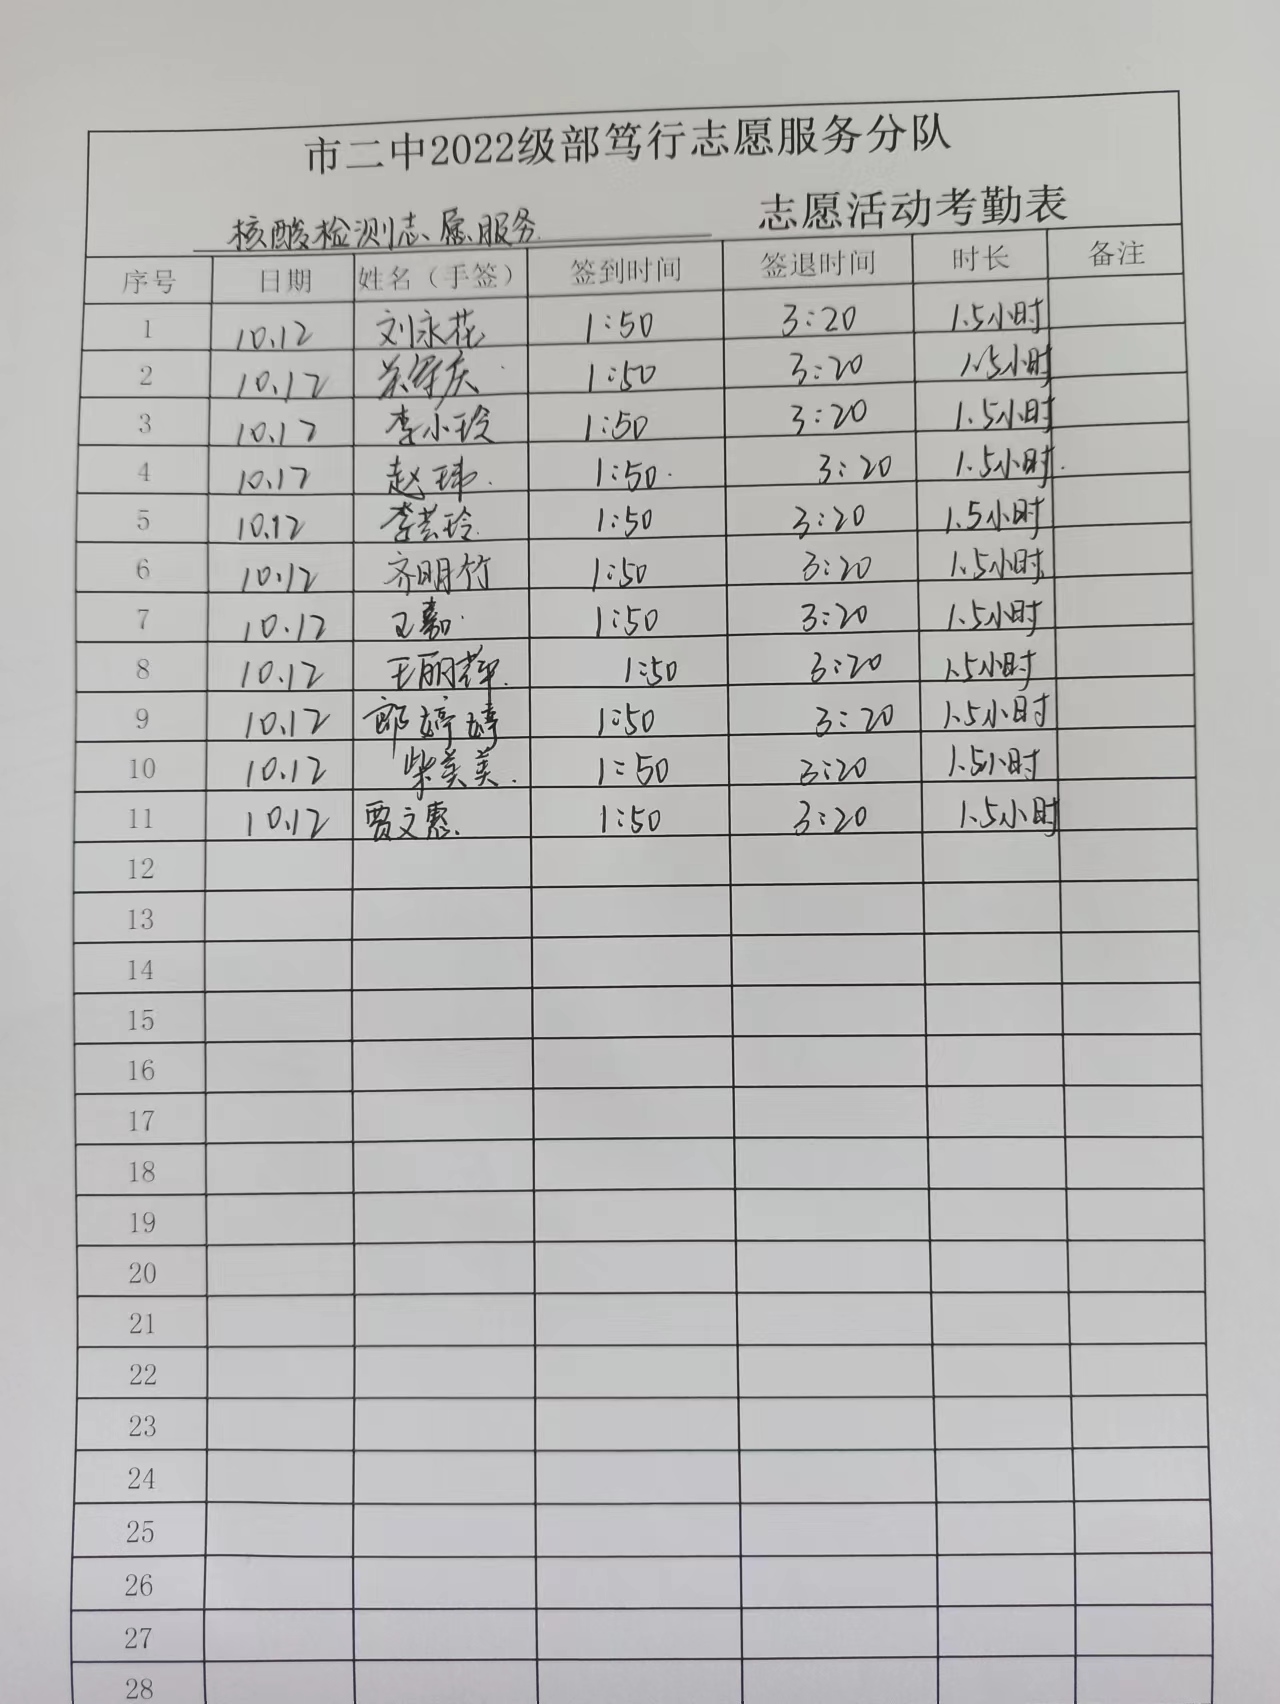 市二中2022级部笃行志愿服务分队
核酸检测志愿服务 志愿活动考勤表
序号 日期 姓名（手签） 签到时间 签退时间 时长 备注
1 10.12 刘永花 1:50 3:20 1.5小时
2 10.12 1:50 3:20 1.5小时
3 10.12 李小玲 1:50 3:20 1.5小时
4 10.12 赵玮 1:50 3:20 1.5小时
5 10.12 李芸玲 1:50 3:20 1.5小时
6 10.12 齐明竹 1:50 3:20 1.5小时
7 10.12 王嘉 1:50 3:20 1.5小时
8 10.12 王丽萍 1:50 3:20 1.5小时
9 10.12 郎婷婷 1:50 3:20 1.5小时
10 10.12 柴美美 1:50 3:20 1.5小时
11 10.12 贾文惠 1:50 3:20 1.5小时
12
13
14
15
16
17
18
19
20
21
22
23
24
25
26
27
28